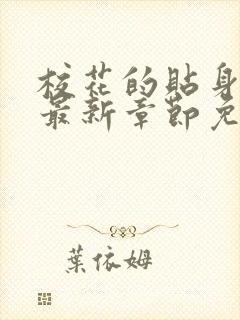 校花的貼身
最新章節免
葉依姆